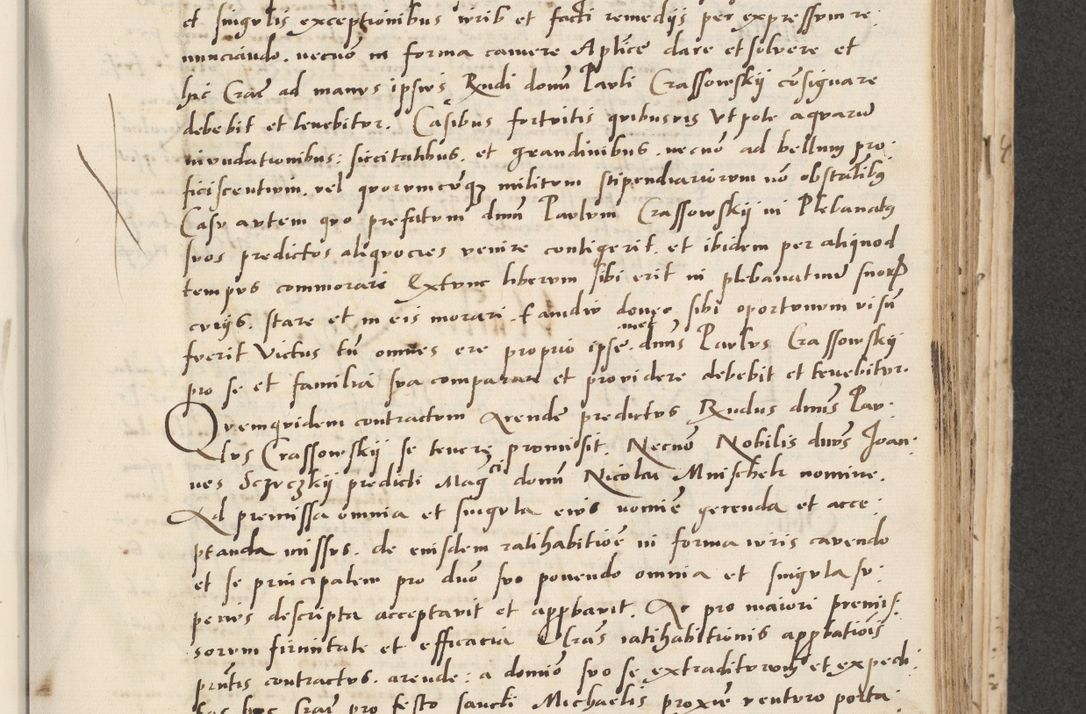 et singulis exceptionibus iuris et facti remedijs per expressum re:
nunciando. necnō in forma camere Aplice dare et solvere et
hic Crac̄ ad manus ipsius Rndi domī Pauli Crassowskij cōsignare
debebit et tenebitur. Casibus fortuitis quibusvis Utpote aquarū
inundationibus: siccitatibus. et grandinibus. necnō ad bellum pro:
ficiscentium. vel quorumcūq3 militum stipendiariorum nō obstātibus
Casu autem quo prefatum dnm Paulum Crassowskij in Plebanatus
suos predictos aliquocies venire contigerit. et ibidem per aliquod
tempus commorari Extunc liberum sibi erit in plebanatuum suorum
curijs. stare et in eis morari. tamdiu donec sibi oportunum visū
fuerit Victus tn̄ omnes ere proprio ipsemet dnus Paulus Crassowskij
pro se et familia sua comparare et providere debebit et tenebitur.
Quemquidem contractum Arende predictus Rndus dnus Pau:
lus Crassowskij se tenere promisit. Necnō Nobilis dnus Joan:
nes Sczuczkij predicti Magci domī Nicolai Mnischek nomine.
Ad premissa omnia et singula eius nomīe gerenda et acce:
ptanda missus. de eiusdem ratihabitiōe in forma iuris cavendo
et se principalem pro dno suo ponendo omnia et singula su:
perius descripta acceptavit et appbavit. Ac pro maiori premis:
sorum firmitate et efficacia Lrās ratihabitionis appbationis
pn̄tis contractus. arende: a domīo suo se extraditurum et expedi:
tas huc Crac̄ pro festo sancti Michaelis proxīe venturo porta: